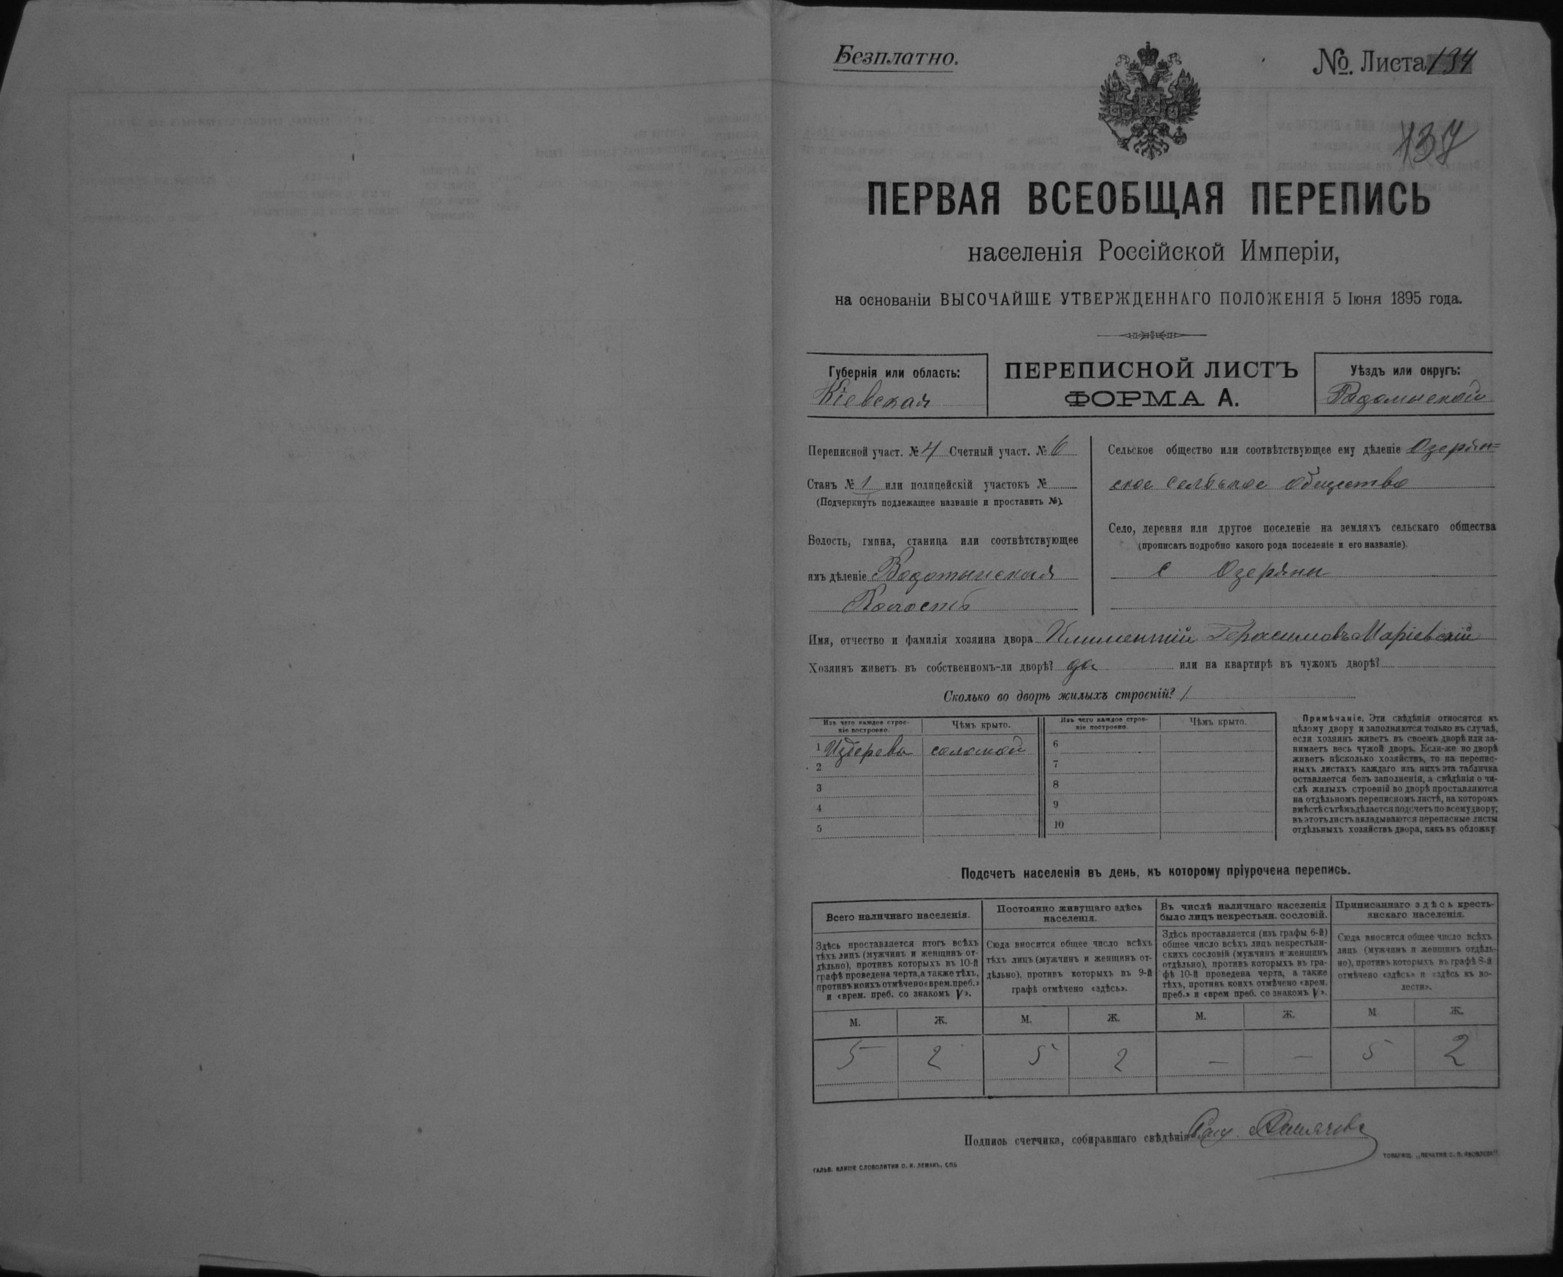 Безплатно.
№. Листа 134
137
ПЕРВАЯ ВСЕОБЩАЯ ПЕРЕПИСЬ
населенія Россійской Имперіи,
на основаніи ВЫСОЧАЙШЕ УТВЕРЖДЕННАГО ПОЛОЖЕНІЯ 5 Іюня 1895 года.
Губернія или область:
Кіевская
ПЕРЕПИСНОЙ ЛИСТЪ
ФОРМА А.
Уѣздъ или округъ:
Радомысской
Переписной участ. № 4 Счетный участ. № 6
Станъ № 1 или полицейскій участокъ №
(Подчеркнуть подлежащее названіе и проставить №).
Волость, гмина, станица или соотвѣтствующее
имъ дѣленіе Водотынская
Волость
Сельское общество или соотвѣтствующее ему дѣленіе Озерян=
ское сельское общество
Село, деревня или другое поселеніе на земляхъ сельскаго общества
(прописать подробно какого рода поселеніе и его названіе).
с Озеряны
Имя, отчество и фамилія хозяина двора Климентій Герасимовъ Маріевскій
Хозяинъ живетъ въ собственномъ-ли дворѣ? да или на квартирѣ въ чужомъ дворѣ?
Сколько во дворѣ жилыхъ строеній? 1
Изъ чего каждое строе-
ніе построено.
Чѣмъ крыто.
1 Издерева соломой
2
3
4
5
Изъ чего каждое строе-
ніе построено.
Чѣмъ крыто.
6
7
8
9
10
Примѣчаніе. Эти свѣдѣнія относятся къ
цѣлому двору и заполняются только въ случаѣ,
если хозяинъ живетъ въ своемъ дворѣ или за-
нимаетъ весь чужой дворъ. Если-же во дворѣ
живетъ нѣсколько хозяйствъ, то на перепис-
ныхъ листахъ каждаго изъ нихъ эта табличка
оставляется безъ заполненія, а свѣдѣнія о чи-
слѣ жилыхъ строеній во дворѣ проставляются
на отдѣльномъ переписномъ листѣ, на которомъ
вмѣстѣ съ тѣмъ дѣлается подсчетъ по всему двору;
въ этотъ листъ вкладываются переписные листы
отдѣльныхъ хозяйствъ двора, какъ въ обложку.
Подсчетъ населенія въ день, къ которому пріурочена перепись.
Всего наличнаго населенія.
Здѣсь проставляется итогъ всѣхъ
тѣхъ лицъ (мужчинъ и женщинъ от-
дѣльно), противъ которыхъ въ 10-й
графѣ проведена черта, а также тѣхъ,
противъ коихъ отмѣчено «врем. преб.»
и «врем. преб. со знакомъ V».
Постоянно живущаго здѣсь
населенія.
Сюда вносится общее число всѣхъ
тѣхъ лицъ (мужчинъ и женщинъ от-
дѣльно), противъ которыхъ въ 9-й
графѣ отмѣчено «здѣсь».
Въ числѣ наличнаго населенія
было лицъ некрестьян. сословій.
Здѣсь проставляется (изъ графы 6-й)
общее число всѣхъ лицъ некрестьян-
скихъ сословій (мужчинъ и женщинъ
отдѣльно), противъ которыхъ въ гра-
фѣ 10-й проведена черта, а также
тѣхъ, противъ коихъ отмѣчено «врем.
преб.» и «врем преб. со знакомъ V».
Приписаннаго здѣсь кресть-
янскаго населенія.
Сюда вносится общее число всѣхъ
лицъ (мужчинъ и женщинъ отдѣль-
но), противъ которыхъ въ графѣ 8-й
отмѣчено «здѣсь» и «здѣсь въ во-
лости».
М. Ж. М. Ж. М. Ж. М. Ж.
5 2 5 2 — — 5 2
Подпись счетчика, собиравшаго свѣдѣнія